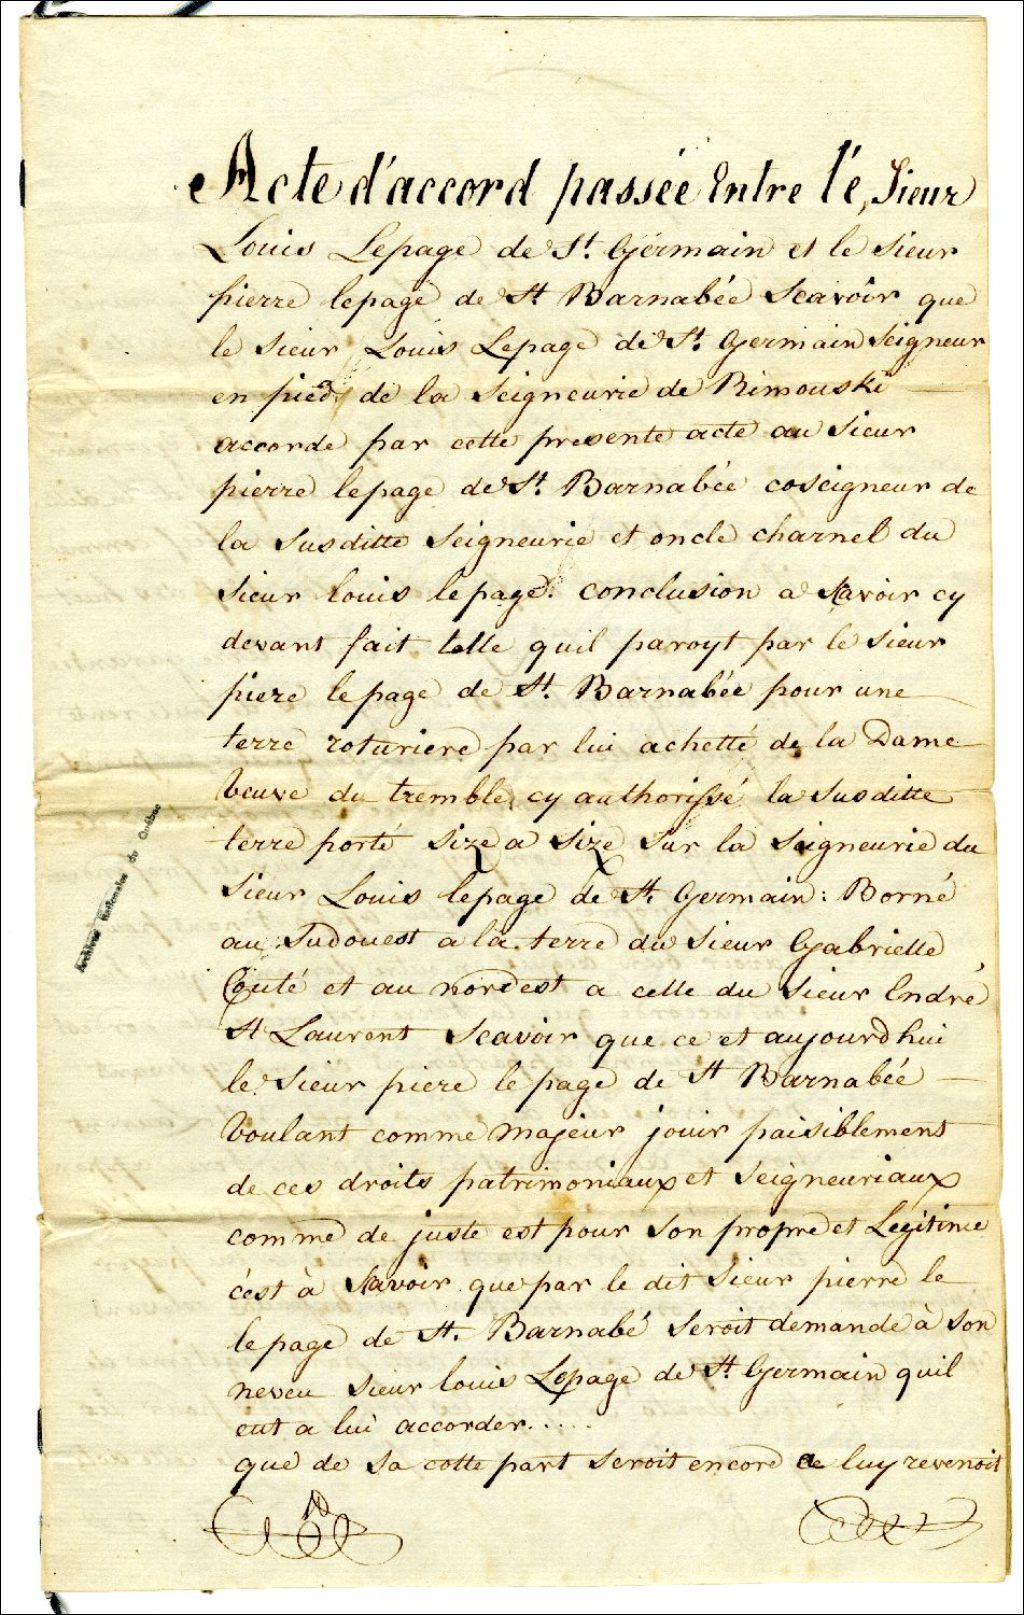 Acte d'accord passée Entre lé Sieur
Louis Lepage de St. Germain et le Sieur
pierre lepage de St Barnabée Scavoir que
le Sieur Louis Lepage de St. Germain Seigneur
en pied de la Seigneurie de Rimouski
accorde par cette presente acte au Sieur
pierre lepage de St. Barnabée coseigneur de
la Susditte Seigneurie et oncle charnel du
Sieur Louis lepage. conclusion a Scavoir cy
devant fait telle quil paroyt par le Sieur
piere le page de St. Barnabée pour une
terre roturiere par lui achetté de la Dame
Veuve du tremble cy authorissé la Susditte
terre porté Size a Size Sur la Seigneurie du
Sieur Louis lepage de St. Germain: Borné
au Sudouest a la terre du Sieur Gabrielle
Couté et au nordest a celle du Sieur Endré
St Laurent Scavoir que ce et aujourdhui
le Sieur piere le page de St Barnabée
Voulant comme majeur jouir paisiblement
de ces droits patrimoniaux et Seigneuriaux
comme de juste est pour Son propre et Legitime
c'est à Scavoir que par le dit Sieur pierre le
lepage de St. Barnabé Seroit demandé à Son
neveu Sieur louis Lepage de St Germain quil
eut a lui accorder.....
que de Sa cotte part Seroit encore a luy revenoit
Archives Nationales du Québec